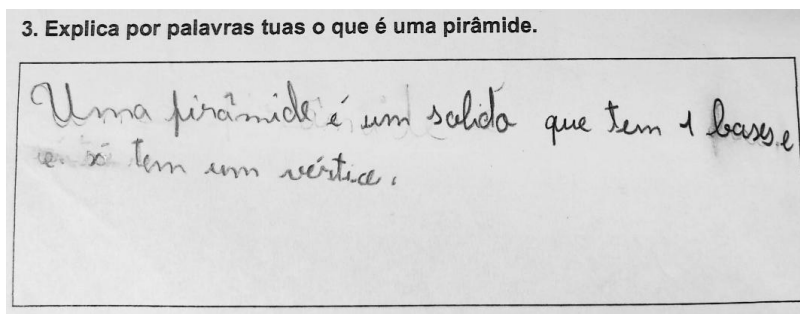 3. Explica por palavras tuas o que é uma pirâmide.
Uma pirâmide é um solido que tem 1 bases e
e só tem um vértice.